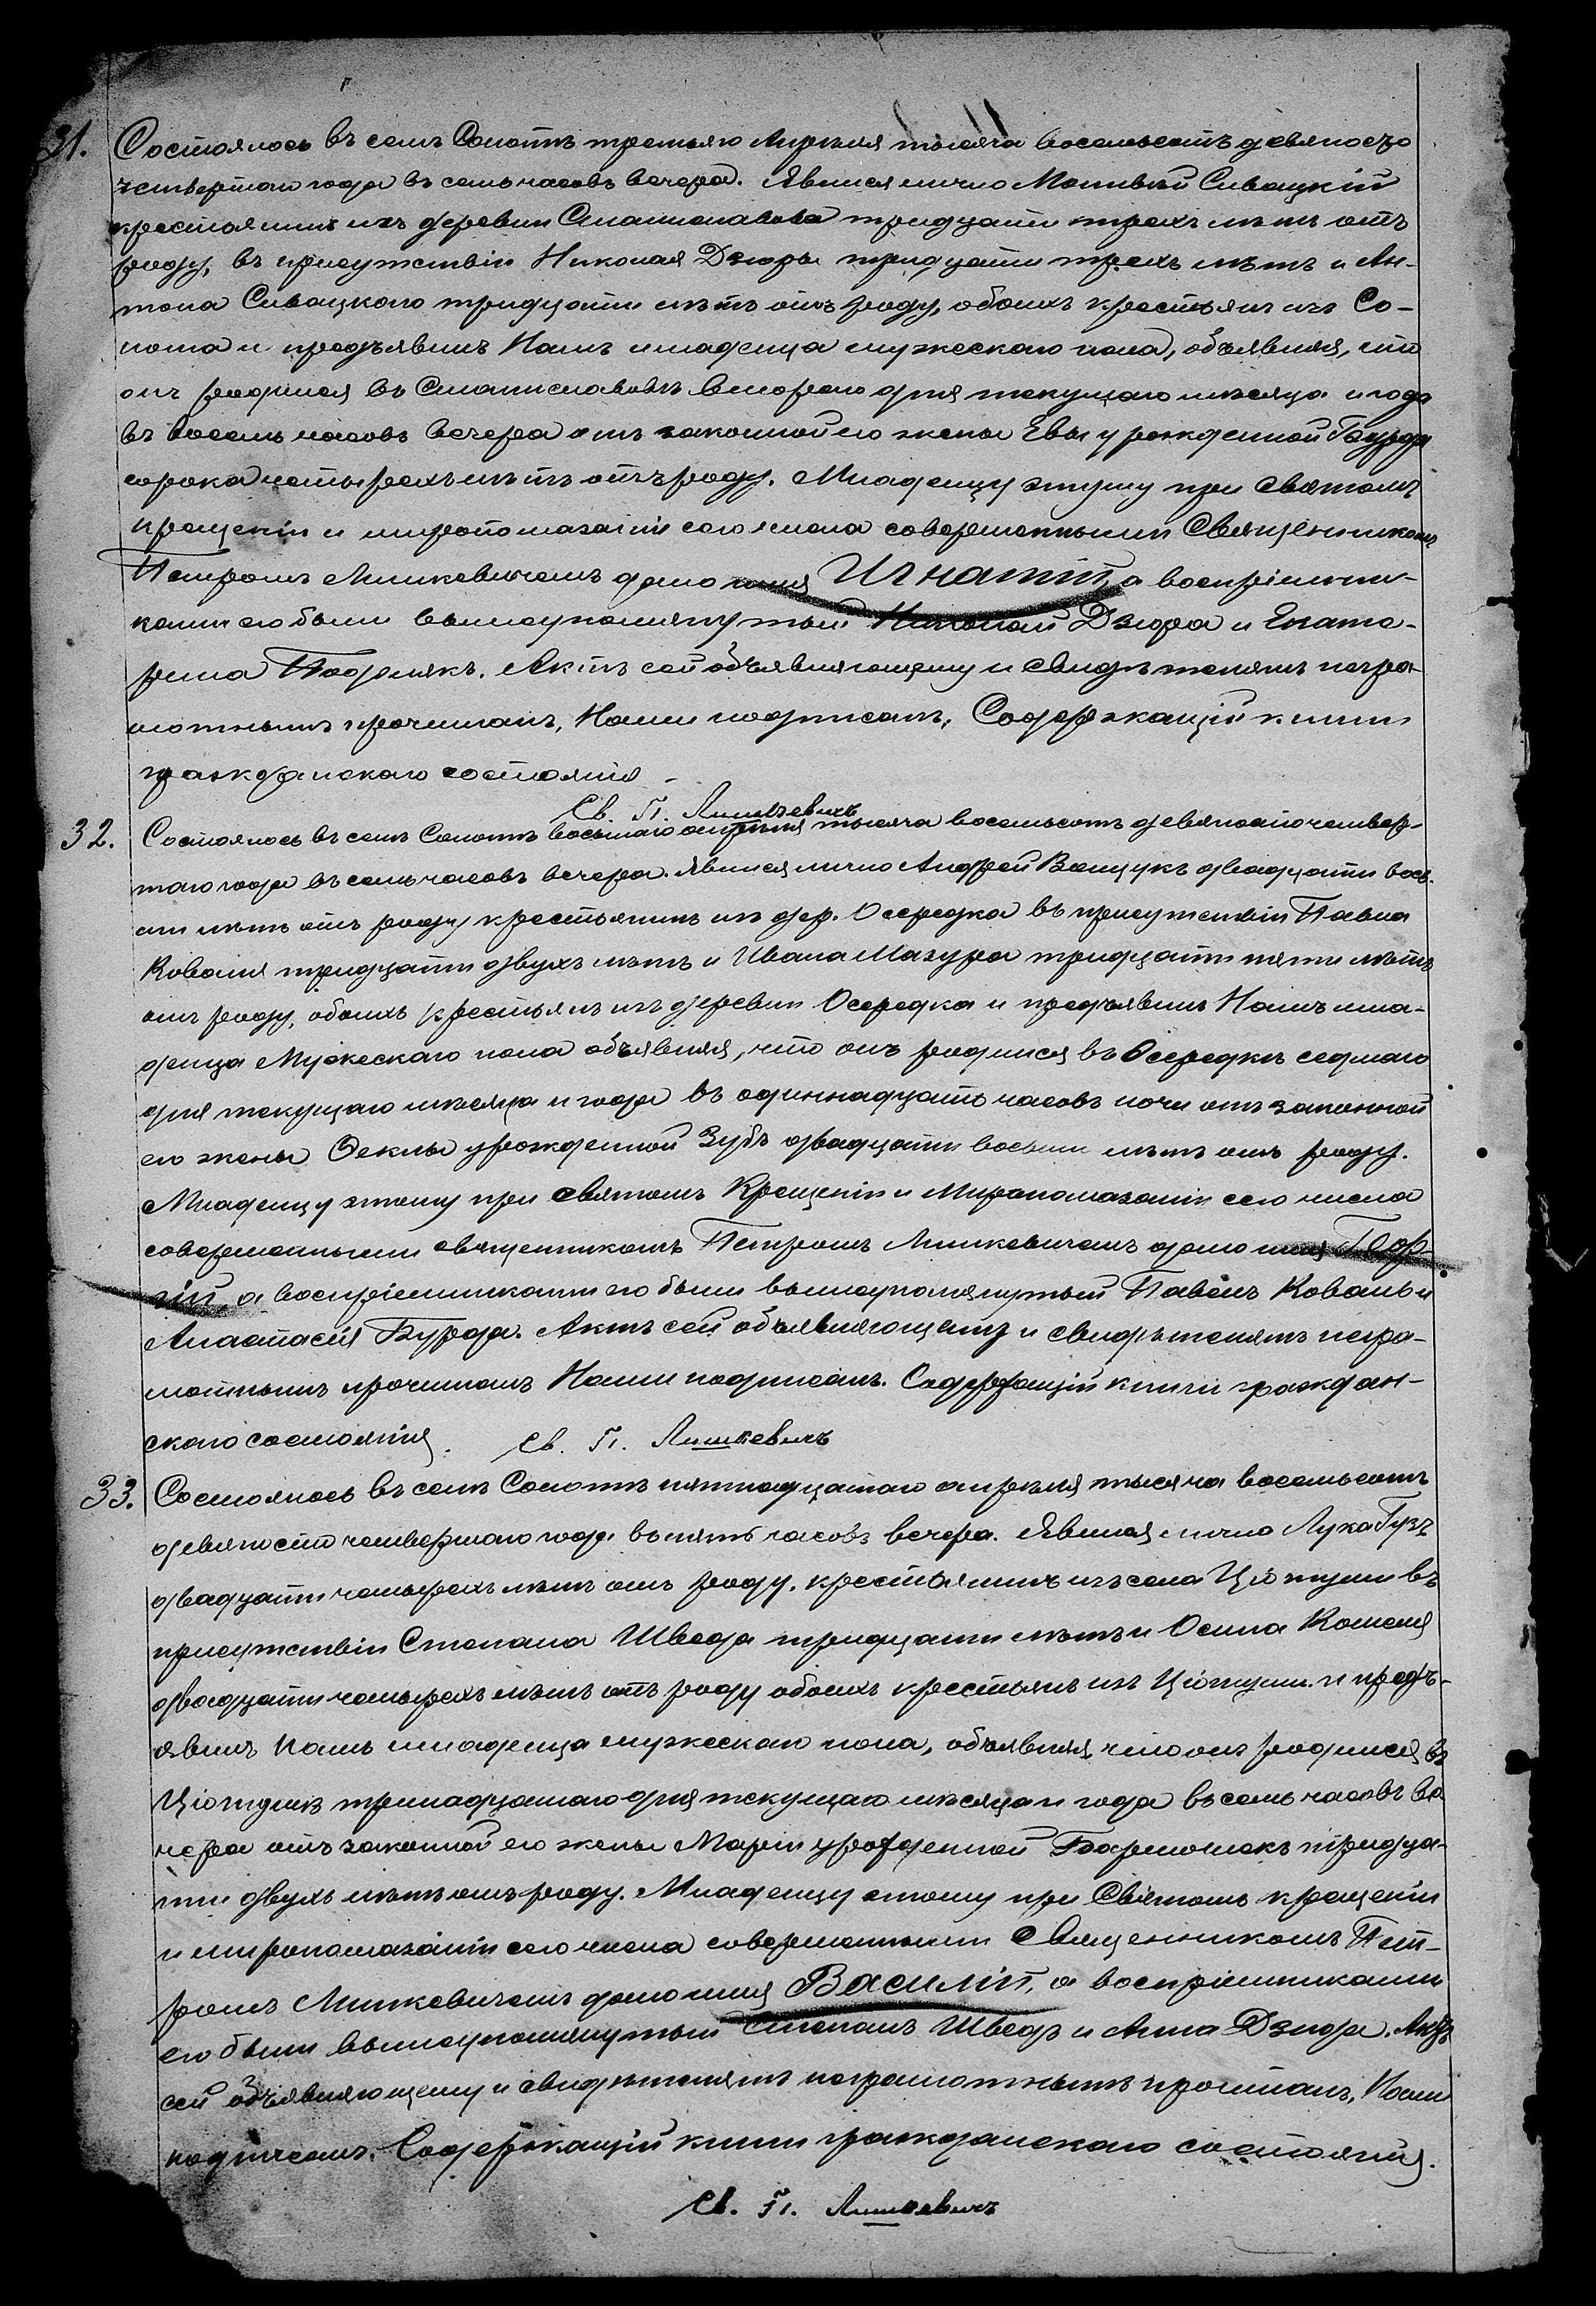 31. Состоялось въ селѣ Сопотъ третьяго Апрѣля тысяча восемьсотъ девяносто
четвертаго года въ семь часовъ вечера. Явился лично Матвѣй Сивацкій
крестьянинъ изъ деревни Станиславова тридцати трехъ лѣтъ отъ
роду, въ присутствіи Николая Дзюры тридцати трехъ лѣтъ и Ан-
тона Сивацкого тридцати лѣтъ отъ роду, обоихъ крестьянъ изъ Со-
пота и предъявилъ Намъ младенца мужескаго пола, объявляя, что
онъ родился въ Станиславовѣ второго дня текущаго мѣсяца и года
въ восемь часовъ вечера отъ законной его жены Евы урожденной Бурда
сорока четырехъ лѣтъ отъ роду. Младенцу этому при Святомъ
крещеніи и миропомазаніи сего числа совершенными Священникомъ
Петромъ Лишкевичемъ дано имя Игнатій, а воспріемни-
ками его были вышеупомянутый Николай Дзюра и Екате-
рина Подолякъ. Актъ сей объявляющему и свидѣтелямъ негра-
мотнымъ прочитанъ, Нами подписанъ, Содержащій книги
гражданскаго состоянія
Св. П. Лишкевичъ
32. Состоялось въ селѣ Сопотъ восьмаго апрѣля тысяча восемьсотъ девяносто четвер-
таго года въ семь часовъ вечера. Явился лично Андрей Ващукъ двадцати вось-
ми лѣтъ отъ роду крестьянинъ изъ дер. Осередка въ присутствіи Павла
Коваля тридцати двухъ лѣтъ и Ивана Мазура тридцати пяти лѣтъ
отъ роду, обоихъ крестьянъ изъ деревни Осередка и предъявилъ Намъ мла-
денца Мужескаго пола объявляя, что онъ родился въ Осередкѣ седмаго
дня текущаго мѣсяца и года въ одиннадцать часовъ ночи отъ законной
его жены Ѳеклы урожденной Зубъ двадцати восьми лѣтъ отъ роду.
Младенцу этому при святомъ Крещеніи и Миропомазаніи сего числа
совершенными священникомъ Петромъ Лишкевичемъ дано имя Геор-
гій, а воспріемниками его были вышеупомянутый Павелъ Коваль и
Анастасія Бурда. Актъ сей объявляющему и свидѣтелямъ негра-
мотнымъ прочитанъ Нами подписанъ. Содержащій книги граждан-
скаго состоянія. Св. П. Лишкевичъ
33. Состоялось въ селѣ Сопотъ пятнадцатаго апрѣля тысяча восемьсотъ
девяносто четвертаго года въ пять часовъ вечера. Явился лично Лука Гузъ
двадцати четырехъ лѣтъ отъ роду, крестьянинъ изъ села Цiотуши въ
присутствіи Степана Шведа тридцати лѣтъ и Осипа Комоня
двадцати четырехъ лѣтъ отъ роду обоихъ крестьянъ изъ Цiотуши. и предъ-
явилъ Намъ младенца мужескаго пола, объявляя, что онъ родился въ
Цiотушѣ тринадцатаго дня текущаго мѣсяца и года въ семь часовъ ве
чера отъ законной его жены Маріи урожденной тридца-
ти двухъ лѣтъ отъ роду. Младенцу этому при Святомъ крещеніи
и миропомазаніи сего числа совершенными Священникомъ Пет-
ромъ Лишкевичемъ дано имя Василій, а воспріемниками
его были вышеупомянутый Степанъ Шведъ и Анна Дзюра. Актъ
сей объявляющему и свидѣтелямъ неграмотнымъ прочитанъ, Нами
подписанъ. Содержащій книги гражданскаго состоянія.
Св. П. Лишкевичъ